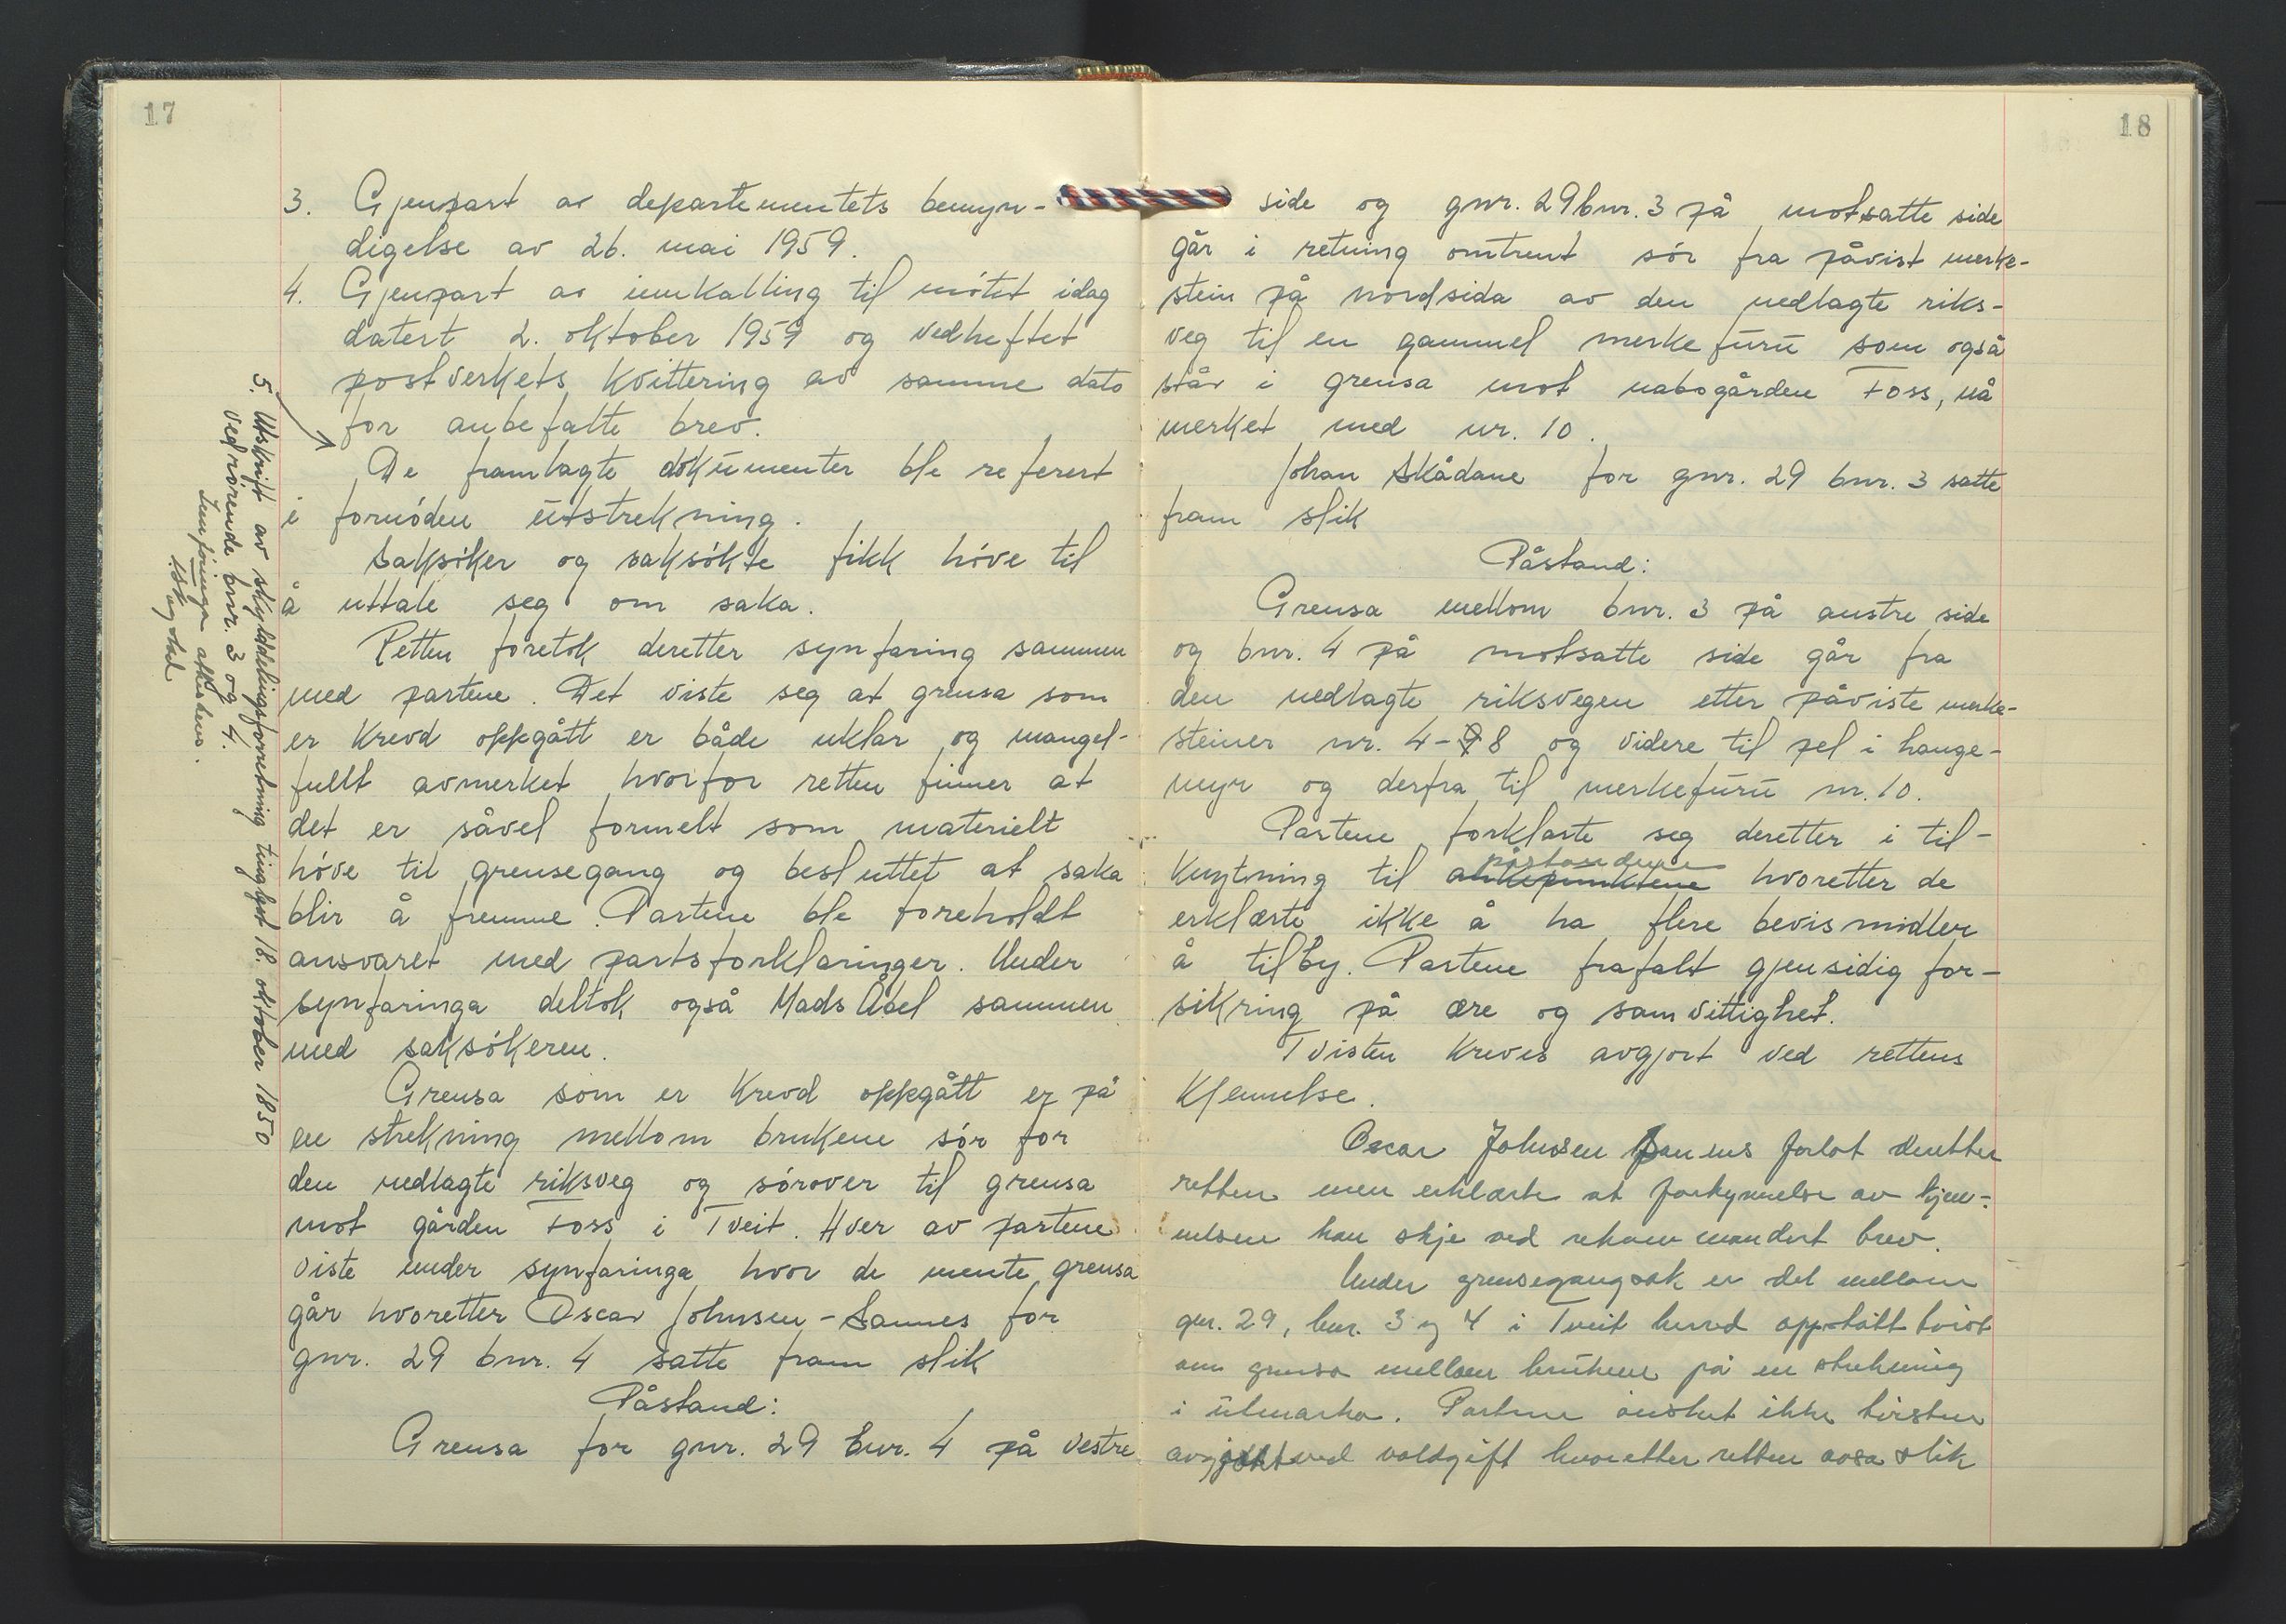 17
3. Gjenpart av departementets bemyn-
digelse av 26. mai 1959.
4. Gjenpart av innkalling til møtet idag
datert 2. oktober 1959 og vedheftet
postverkets kvittering av samme dato
for anbefalte brev.
De framlagte dokumenter ble referert
i fornøden utstrekning.
Saksøker og saksøkte fikk høve til
å uttale seg om saka.
Retten foretok deretter synfaring sammen
med partene. Det viste seg at grensa som
er krevd oppgått er både uklar og mangel-
fullt avmerket hvorfor retten finner at
det er såvel formelt som materielt
høve til grensegang og besluttet at saka
blir å fremme. Partene ble foreholdt
ansvaret med partsforklaringer. Under
synfaringa deltok også Mads Abel sammen
med saksøkeren.
Grensa som er krevd oppgått er på
en strekning mellom brukene sør for
den nedlagte riksveg og sørover til grensa
mot gården Foss i Tveit. Hver av partene
viste under synfaringa hvor de mente grensa
går hvoretter Oscar Johnsen-Sannes for
gnr. 29 bnr. 4 satte fram slik
Påstand:
Grensa for gnr. 29 bnr. 4 på vestre
5. Utskrift av skylddelingsforretning tinglyst 18. oktober 1850
vedrørende bnr. 3 og 4.
Innføringa attesteres.
18
side og gnr. 29 bnr. 3 på motsatte side
går i retning omtrent sør fra påvist merke-
stein på nordsida av den nedlagte riks-
veg til en gammel merkefuru som også
står i grensa mot nabogården Foss, nå
merket med nr. 10.
Johan Skådane for gnr. 29 bnr. 3 satte
fram slik
Påstand:
Grensa mellom bnr. 3 på austre side
og bnr. 4 på motsatte side går fra
den nedlagte riksvegen etter påviste merke-
steiner nr. 4-9 8 og videre til pel i hange-
myr og derfra til merkefuru nr. 10.
Partene forklarte seg deretter i til-
påstandene
knytning til ankepunktene hvoretter de
erklærte ikke å ha flere bevismidler
å tilby. Partene frafalt gjensidig for-
sikring på ære og samvittighet.
Tvisten kreves avgjort ved rettens
kjennelse.
Oscar Johnsen Sannes forlot deretter
retten men erklærte at forkynnelse av kjen-
nelsen kan skje ved rekommandert brev.
Under grensegangsak er det mellom
gnr. 29, bnr. 3 og 4 i Tveit herred oppstått tvist
om grensa mellom brukene på en strekning
i utmarka. Partene ønsket ikke tvisten
avgjort ved voldgift hvoretter retten avsa slik